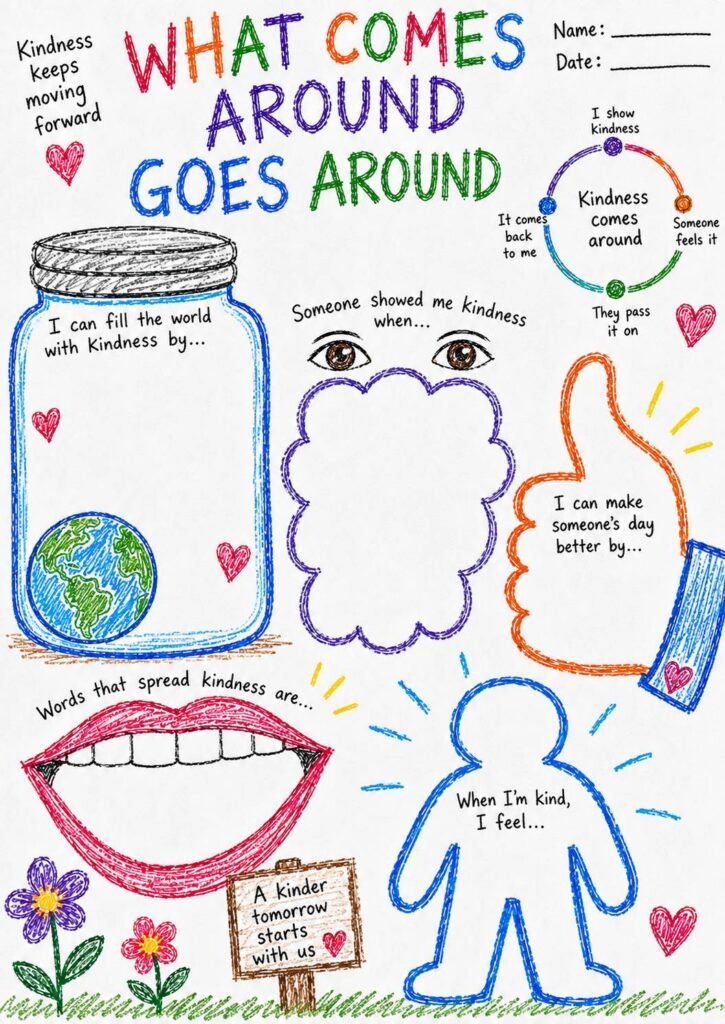 Kindness
keeps
moving
forward
WHAT COMES
AROUND
GOES AROUND
Name:
Date:
I show
kindness
Someone
feels it
They pass
it on
It comes
back
to me
Kindness
comes
around
I can fill the world
with Kindness by...
Someone showed me kindness
when...
I can make
someone's day
better by...
Words that spread kindness are...
When I'm kind,
I feel...
A kinder
tomorrow
starts
with us